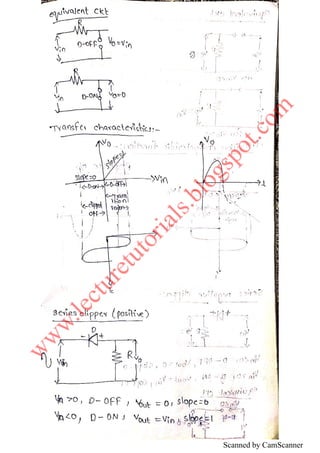 equivalent ckt
R
Vin D-OFF Vo=Vin
R
Vin D-ON Vo=0
Transfer characteristics:-
Vo
Vo
slope=1
slope=0
Vin
t
Series clipper (positive)
D
- +
Vin R Vo
Vin >0, D-OFF, Vout = 0, slope=0
Vin <0, D-ON, Vout = Vin, slope=1
www.lecturetutorials.blogspot.com
Scanned by CamScanner